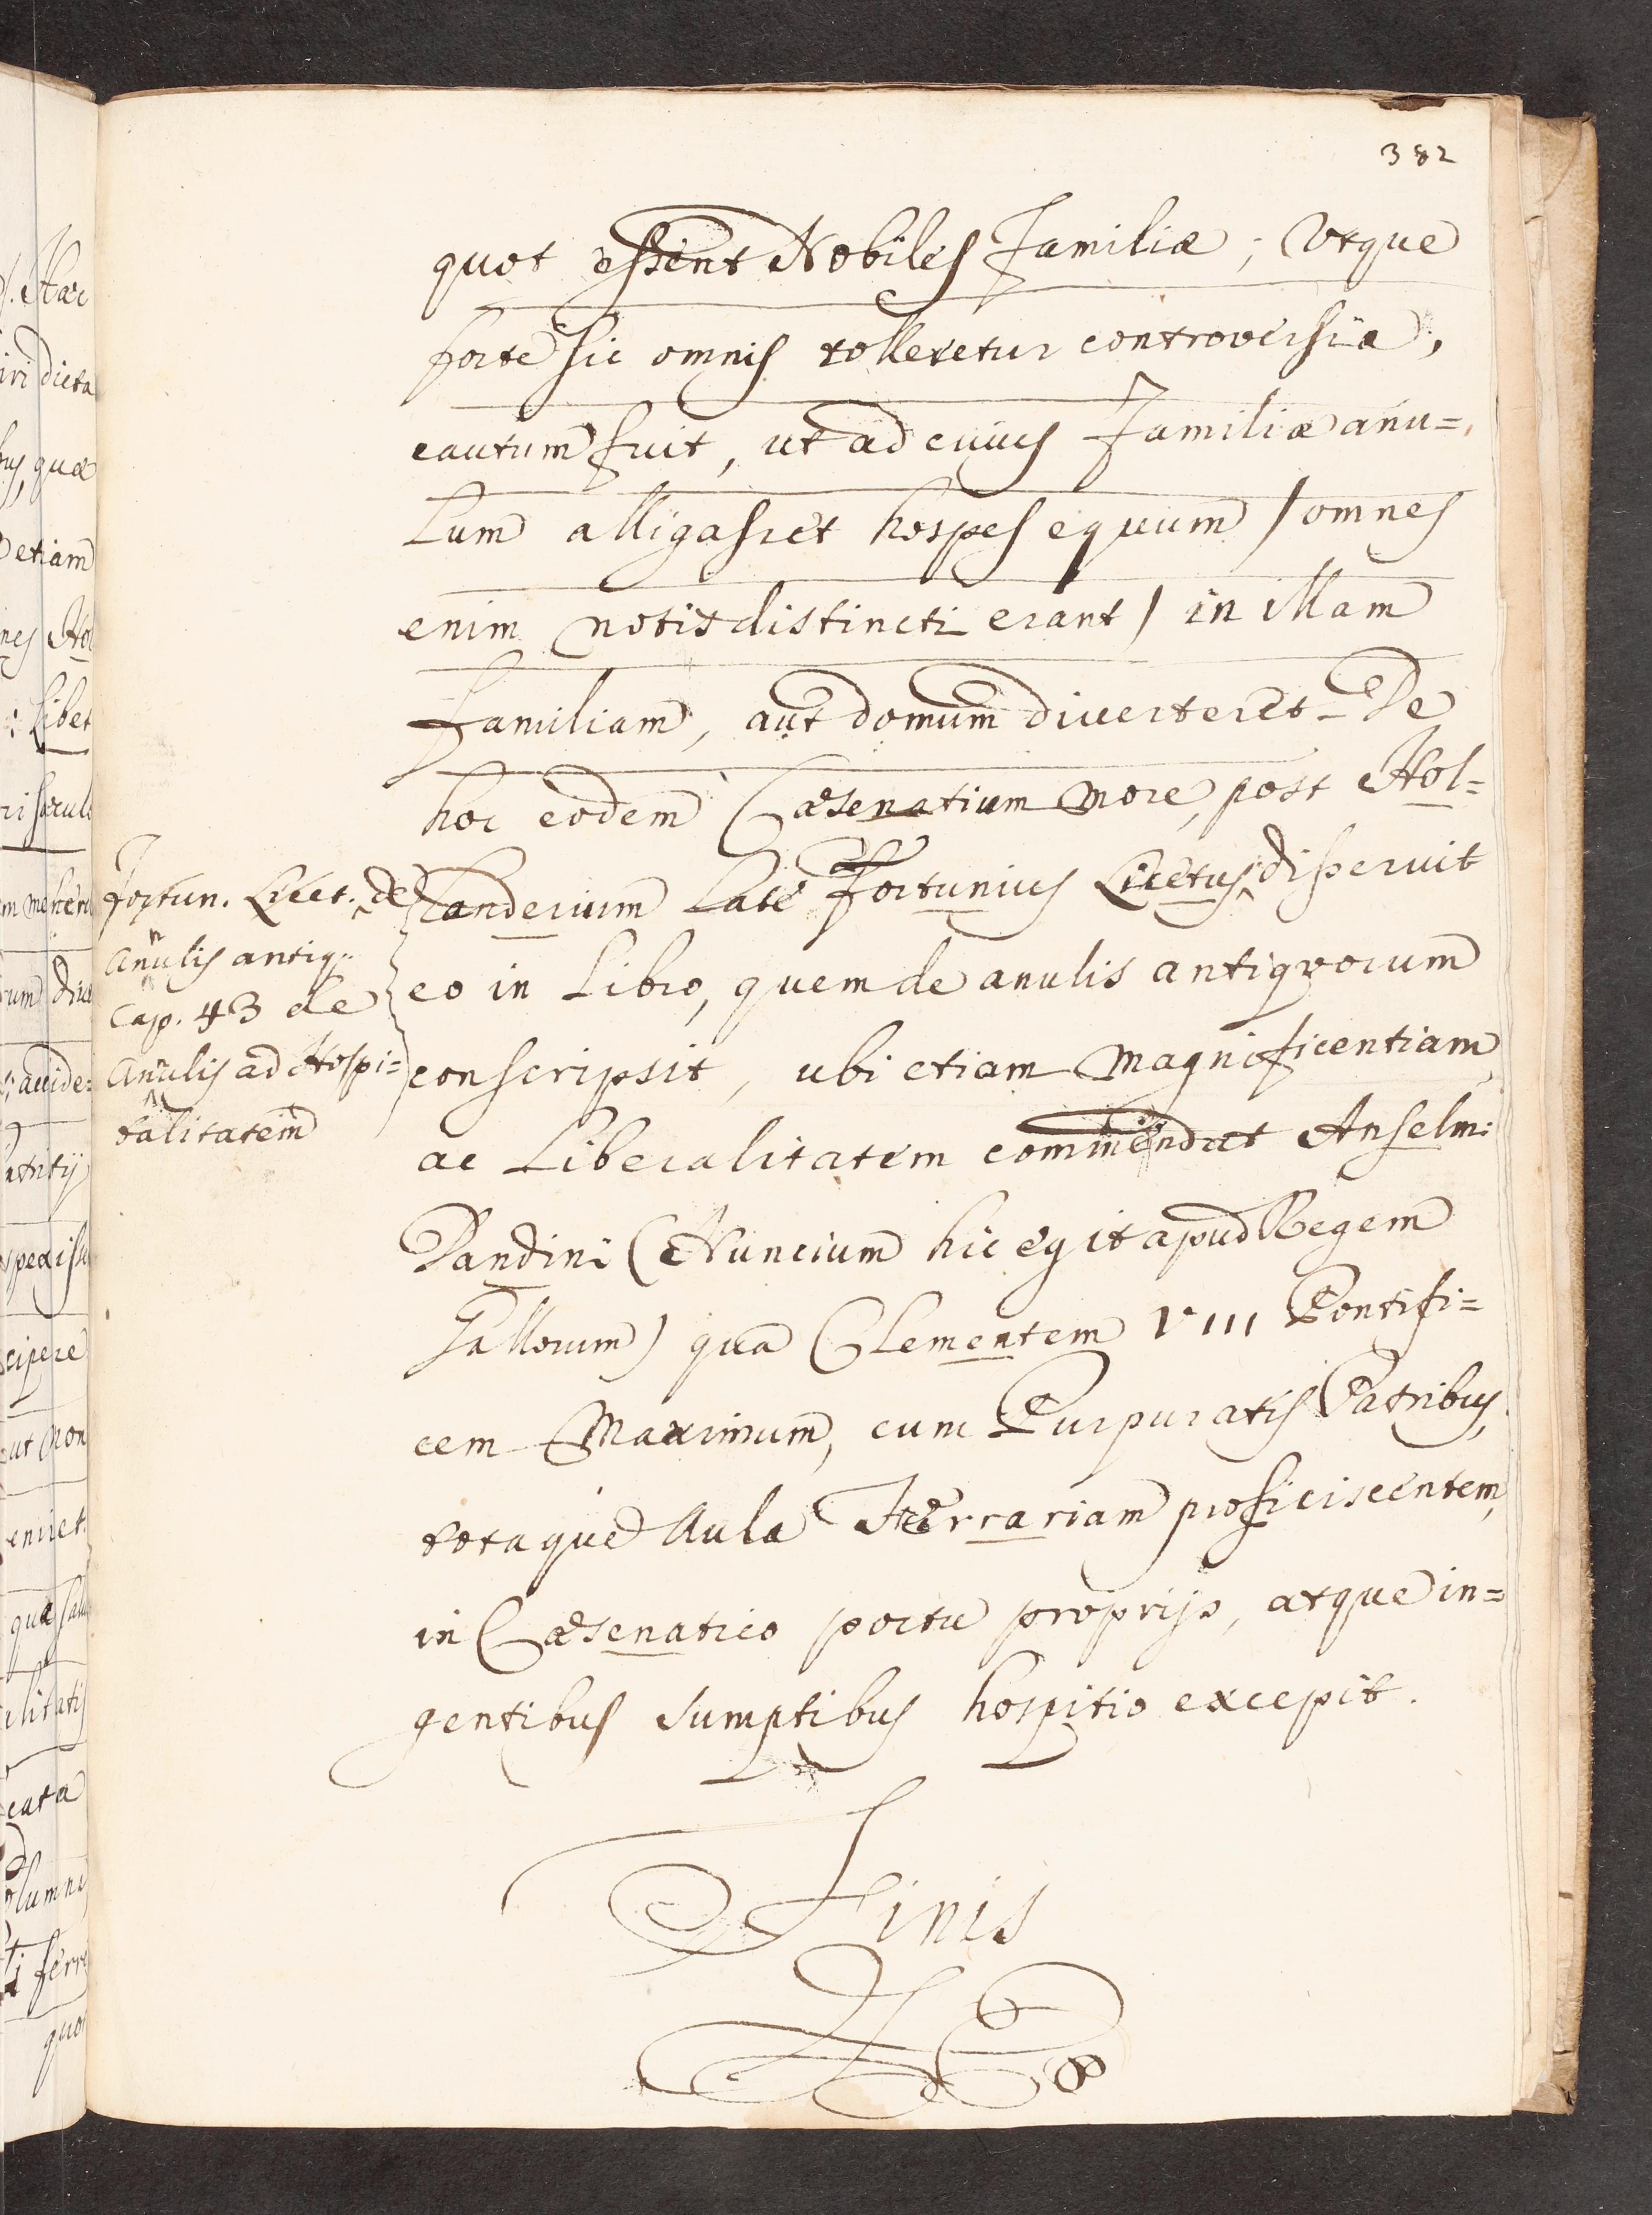 382
quot essent Nobiles Familiæ; Utque
forte sic omnis tolleretur controversia,
cautum fuit, ut ad cuius Familiæ anu=
lum alligasset hospes equum / omnes
enim notis distincti erant / in illam
familiam, aut domum diverteret. De
hoc eodem Cæsenatium more, post Hol=
landerium late Fortunius Licetus disseruit
eo in Libro, quem de anulis antiquorum
conscripsit, ubi etiam magnificentiam
ac Liberalitatem commendat Anselmi
Dandini (Nuncium hic egit apud Regem
Gallorum) qua Clementem VIII Pontifi=
cem Maximum, cum Purpuratis Patribus,
totaque Aula Ferrariam proficiscentem,
in Cæsenatico portu proprijs, atque in=
gentibus sumptibus hospitio excepit.
Finis
Fortun. Licet. de
Annulis antiq.
Cap. 43 de
Annulis ad Hospi=
talitatem